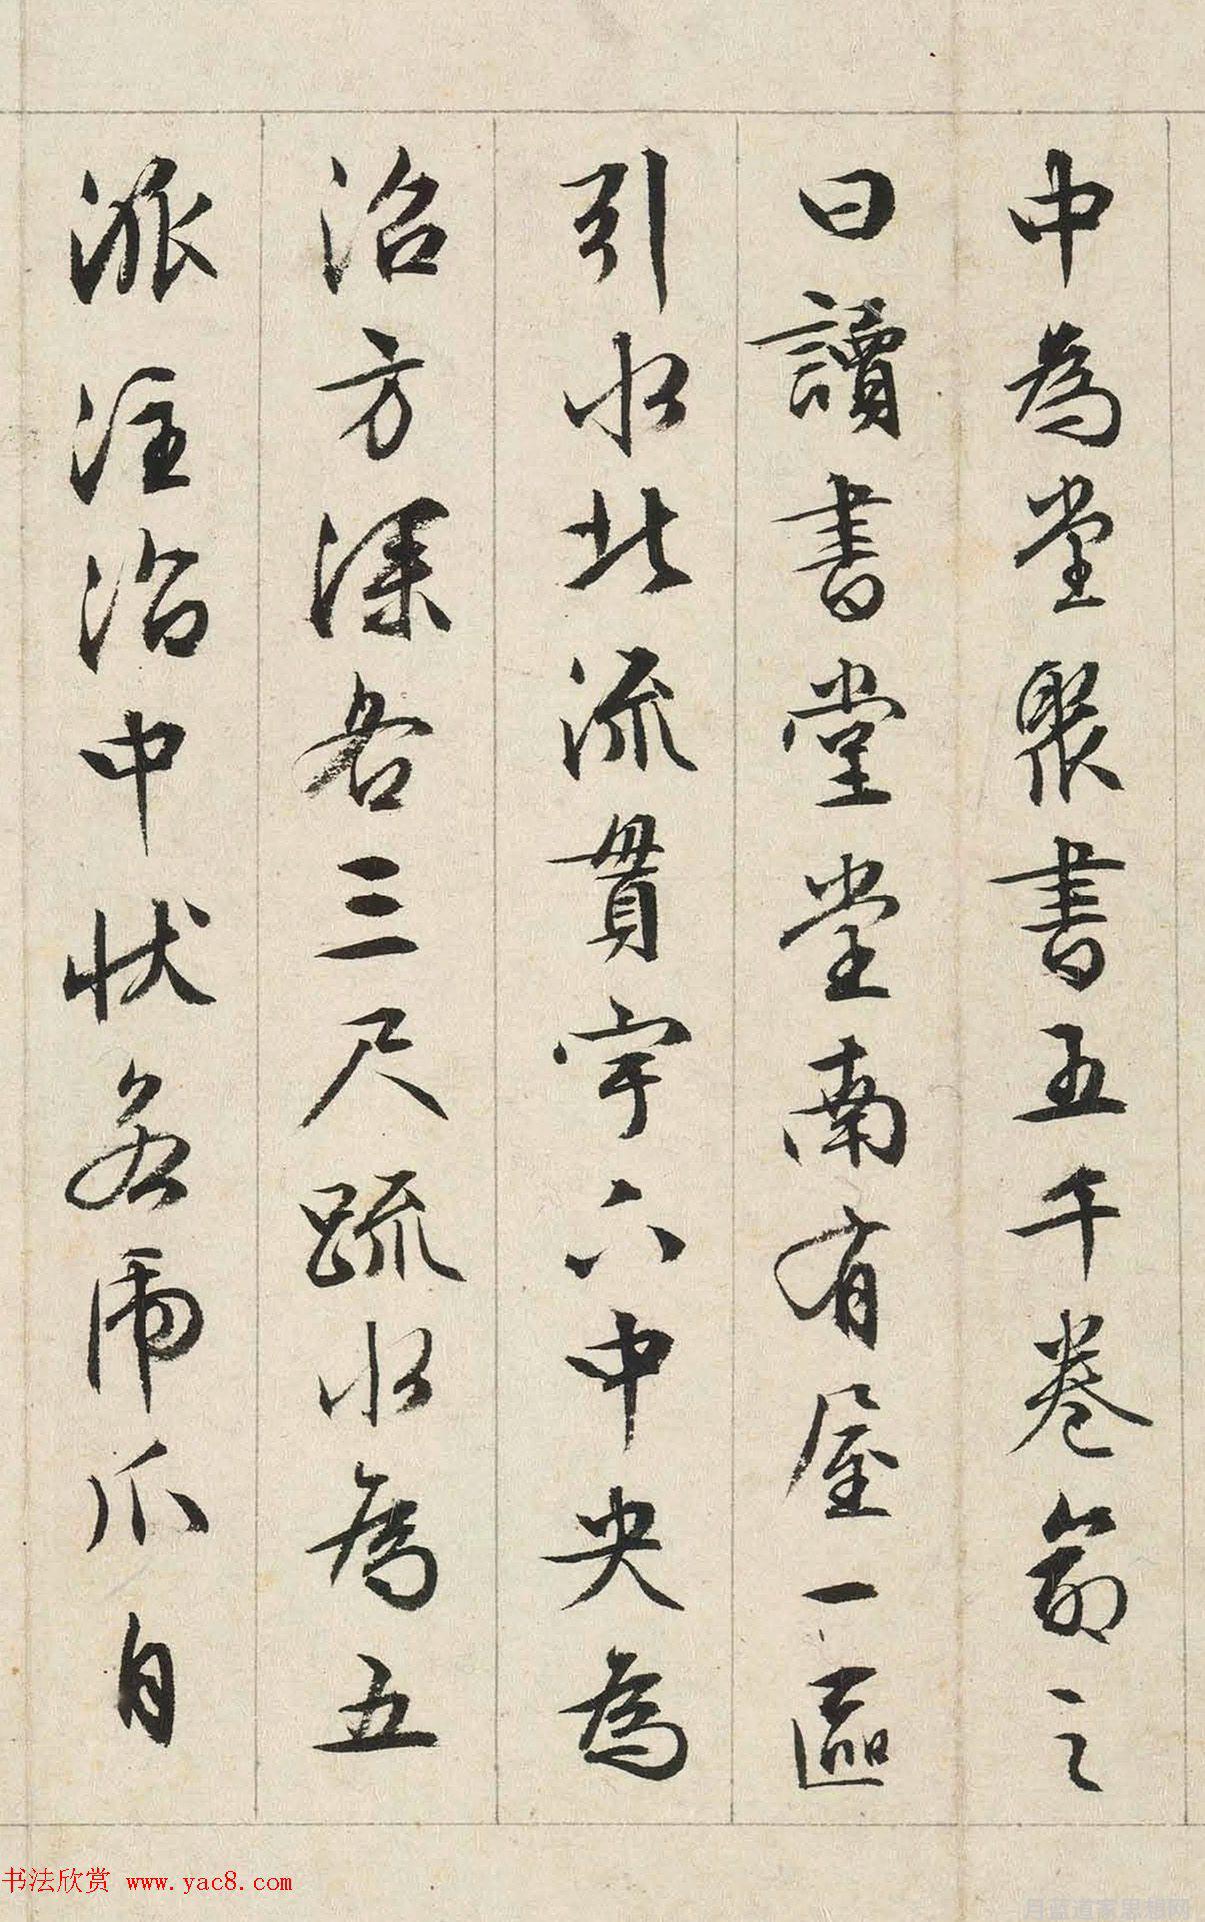 中為堂聚書五千卷命之
曰讀書堂堂南有屋一區
引水北流貫宇下中央為
沼方深各三尺疏水為五
派注沼中狀若虎爪自
书法欣赏 www.yac8.com
月蓝道家思想网